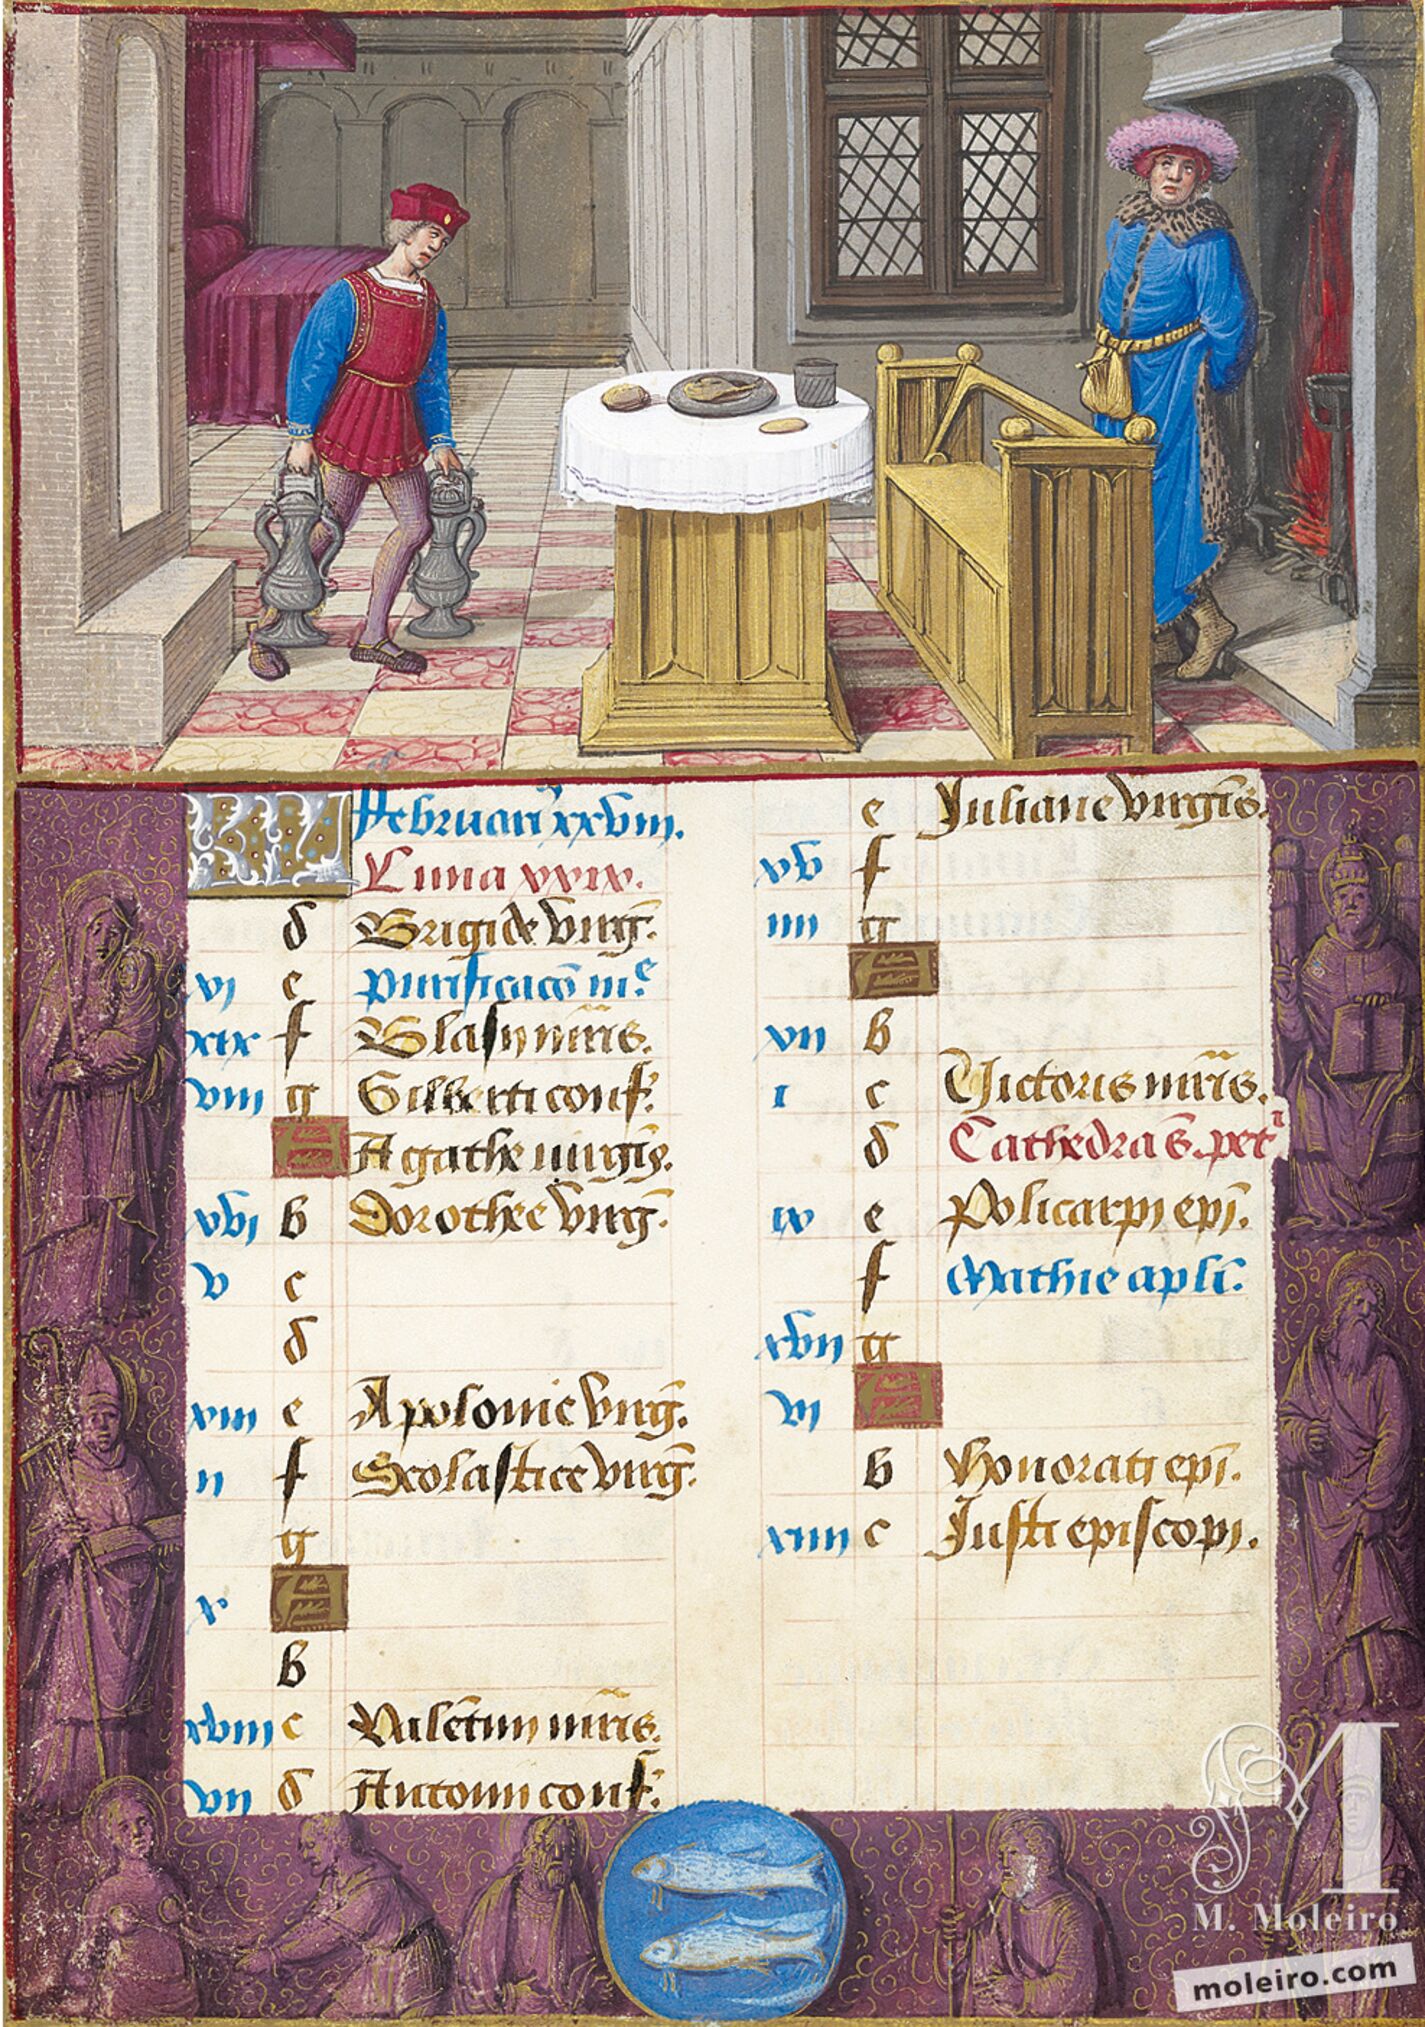 KL Februari' xxviii.
Luna xxix.
d Brigide virg̃.
vi e purificacõ m.e
xix f Blasij mr̃is.
viii g Gilberti conf.
A Agathe uirgĩs.
xvi b Dorothee virg̃.
v c
d
xiii e Apolonie virg̃.
ii f Scolastice virg̃.
g
x A
b
xviii c Valẽtini mr̃is.
vii d Antonii conf.
e Juliane virgĩs.
xv f
iiii g
A
xii b
i c Victoris mr̃is.
d Cathedra s. petri
ix e Policarpi epĩ.
f Mathie apl'i.
xvii g
vi A
b Honorati epĩ.
xiiii c Justi episcopi.
M. Moleiro
moleiro.com